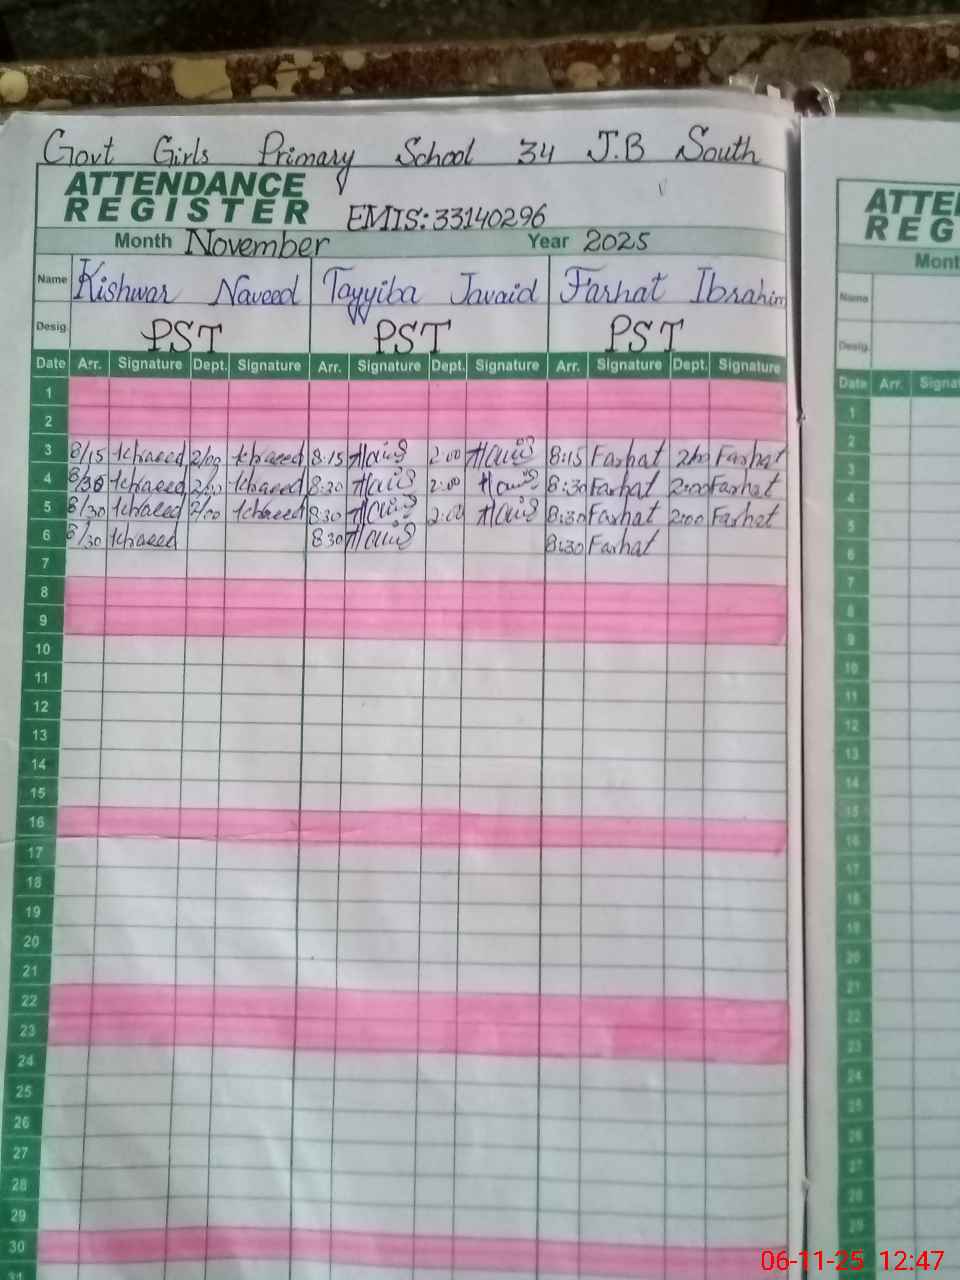 Govt Girls Primary School 34 J.B South
ATTENDANCE
REGISTER EMIS: 33140296
Month November Year 2025
Name Kishwar Naveed Tayyiba Javaid Farhat Ibrahim
Desig. PST PST PST
Date Arr. Signature Dept. Signature Arr. Signature Dept. Signature Arr. Signature Dept. Signature
1
2
3 8/15 2/00 8:15 2:00 8:15 Farhat 2:00 Farhat
4 8/30 2/00 8:30 2:00 8:30 Farhat 2:00 Farhat
5 8/30 2/00 8:30 2:00 8:30 Farhat 2:00 Farhat
6 8/30 8:30 8:30 Farhat
7
8
9
10
11
12
13
14
15
16
17
18
19
20
21
22
23
24
25
26
27
28
29
30
31
ATTE
REG
Mont
Name
Desig.
Date Arr. Signa
1
2
3
4
5
6
7
8
9
10
11
12
13
14
15
16
17
18
19
20
21
22
23
24
25
26
27
28
29
06-11-25 12:47